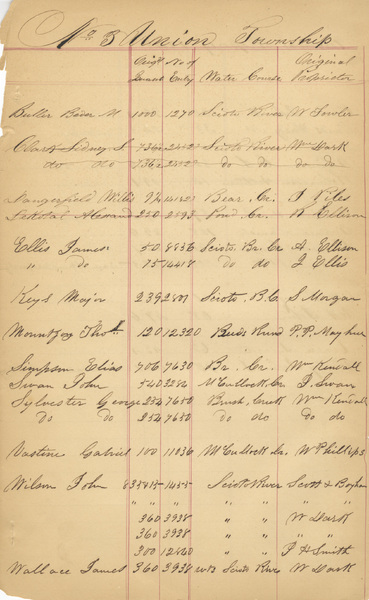 No 3 Union Township
Orig'l No of Original
Survey Entry Water Course Proprietor
Butler Benr M 1000 1270 Scioto River W Fowler
Clark Sidney S 736 2 2482 Scioto River Wm Dark
do do 736 2 2482 do do do do
Dangerfield Willis 94 14122 Bear Cr. J Piles
250 2593 Pond Cr. R Ellison
Ellis James 50 8836 Scioto Br. Cr A. Ellison
" do 75 14418 do do J Ellis
Keys Major 239 2801 Scioto. B. C. S. Morgan
Mountjoy Thos 120 12320 Run P. P. Mayhew
Simpson Elias 706 7630 Br. Cr. Wm Kendall
Swan John 540 3286 McCullock Cr. J. Swan
Sylvester George 254 7650 Brush Creek Wm Kendall
do do 254 7650 do do do do
Vastine Gabriel 100 11036 McCullock Cr. W Phillips
Wilson John 835 1455 Scioto River Scott &
" " " "
360 3938 " " W Dark
360 3938 " " "
300 12660 " J H Smith
Wallace James 360 3938 Scioto River W Dark